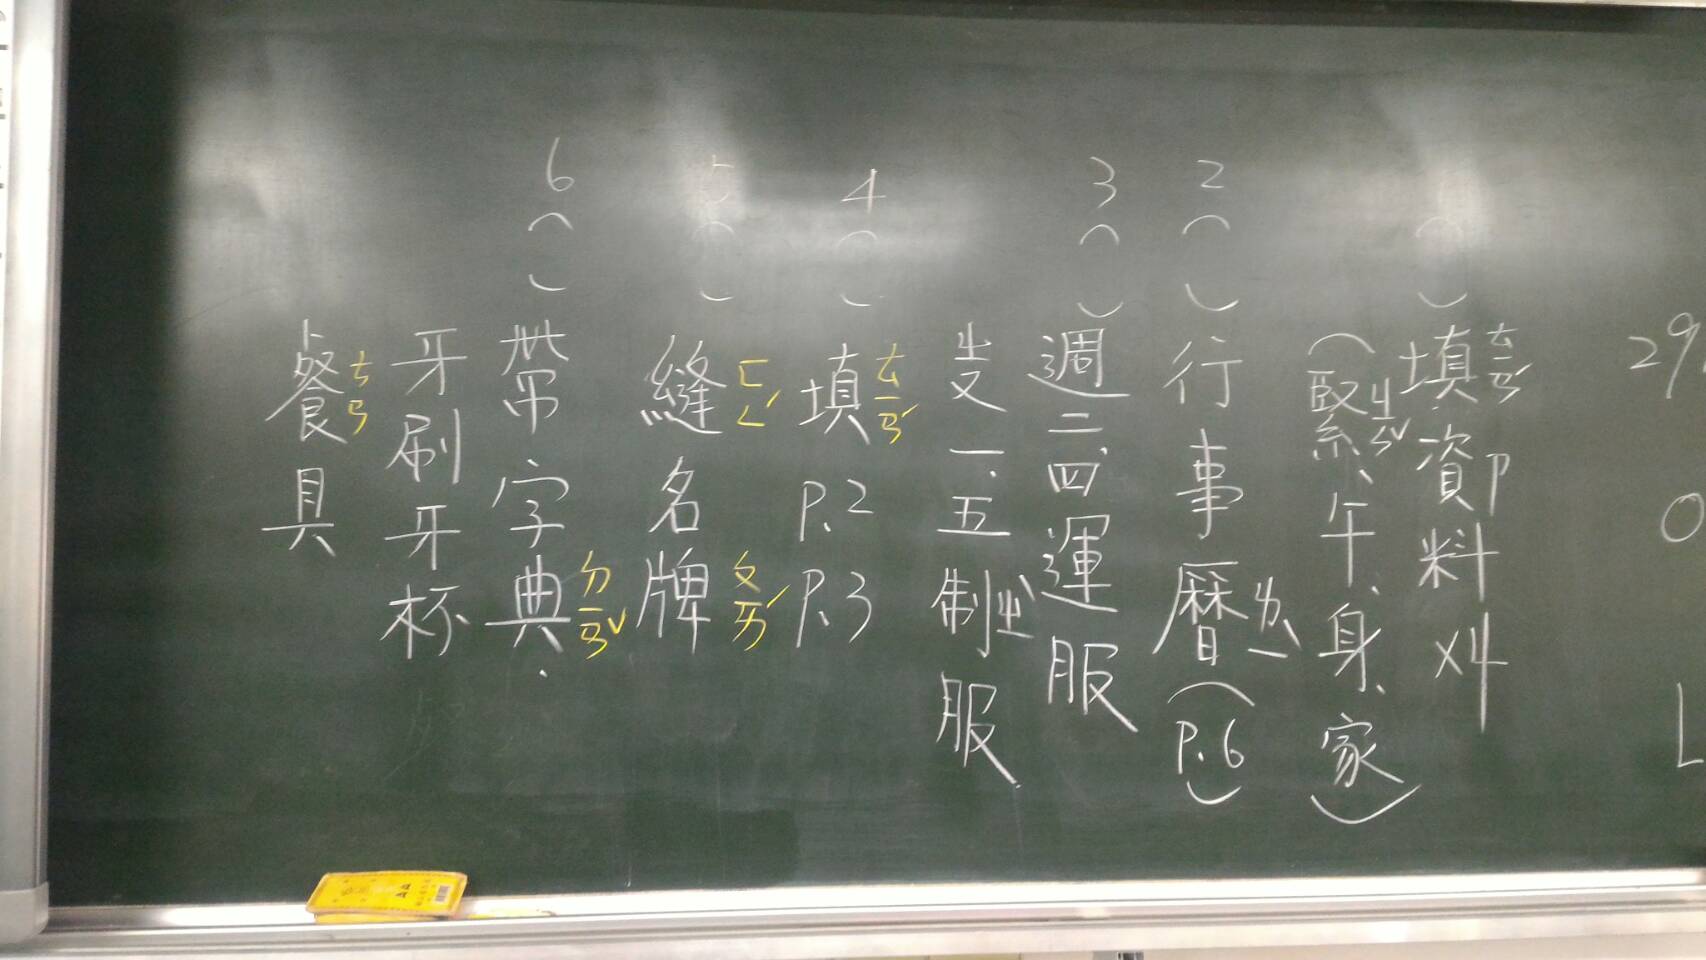 29
0
( )填ㄊㄧㄢˊ資ㄗ料x4
(緊ㄐㄧㄣˇ、午、身、家)
2( )行事曆ㄌㄧˋ(P.6)
3( )週二、四運服
ㄓㄡ一、五制ㄓˋ服.
4( )填ㄊㄧㄢˊP.2 P.3
5( )縫ㄈㄥˊ名牌ㄆㄞˊ
6( )帶字典ㄉㄧㄢˇ.
牙刷牙杯
餐ㄘㄢ具